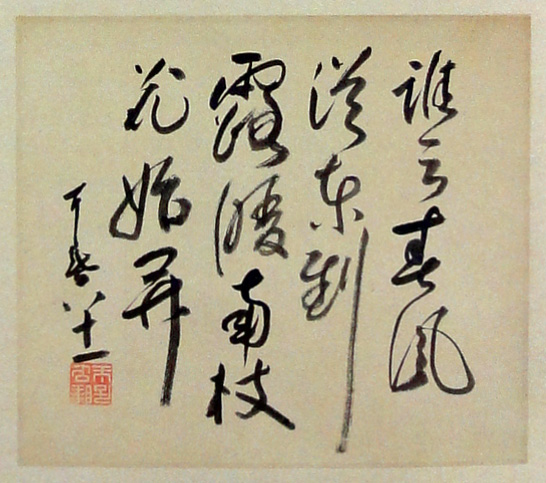 誰言春風
從東到
露暖南枝
花始開
八十一